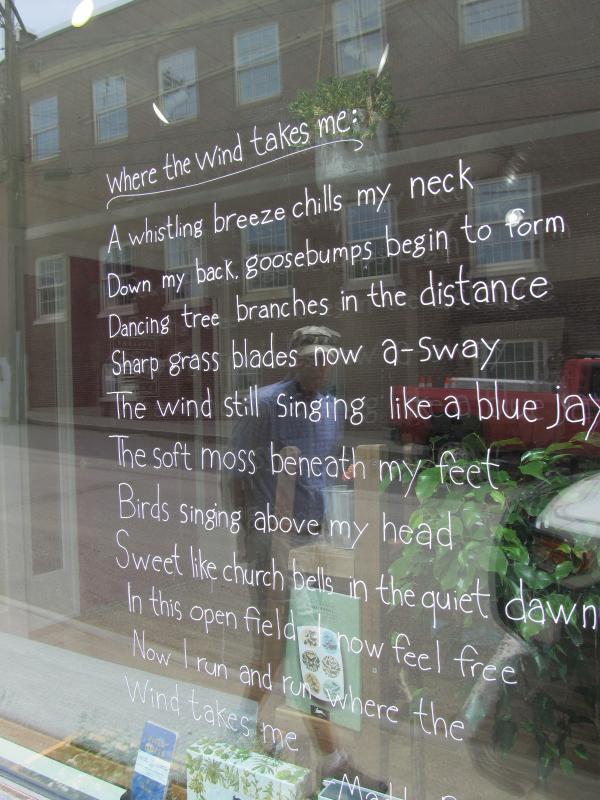 Where the Wind takes me:
A whistling breeze chills my neck
Down my back, goosebumps begin to form
Dancing tree branches in the distance
Sharp grass blades now a-sway
The wind still singing like a blue jay
The soft moss beneath my feet
Birds singing above my head
Sweet like church bells in the quiet dawn
In this open field, I now feel free
Now I run and run where the
Wind takes me